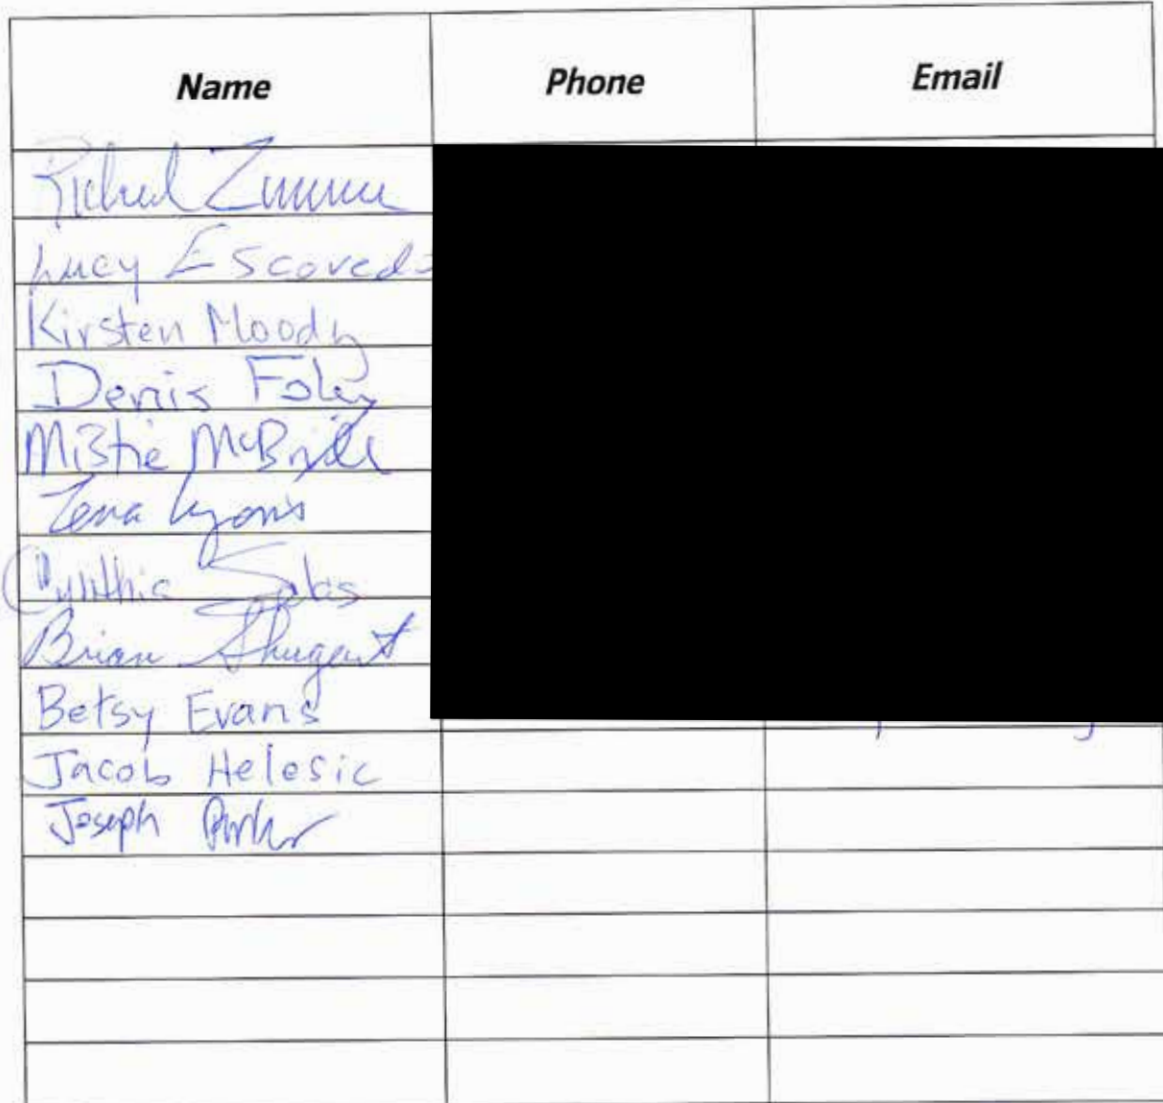 Name Phone Email
Richard
Lucy Escoved
Kirsten Moody
Denis Foley
Mistie McBride
Lyons
Cynthia
Brian Shugart
Betsy Evans
Jacob Helesic
Joseph Parker